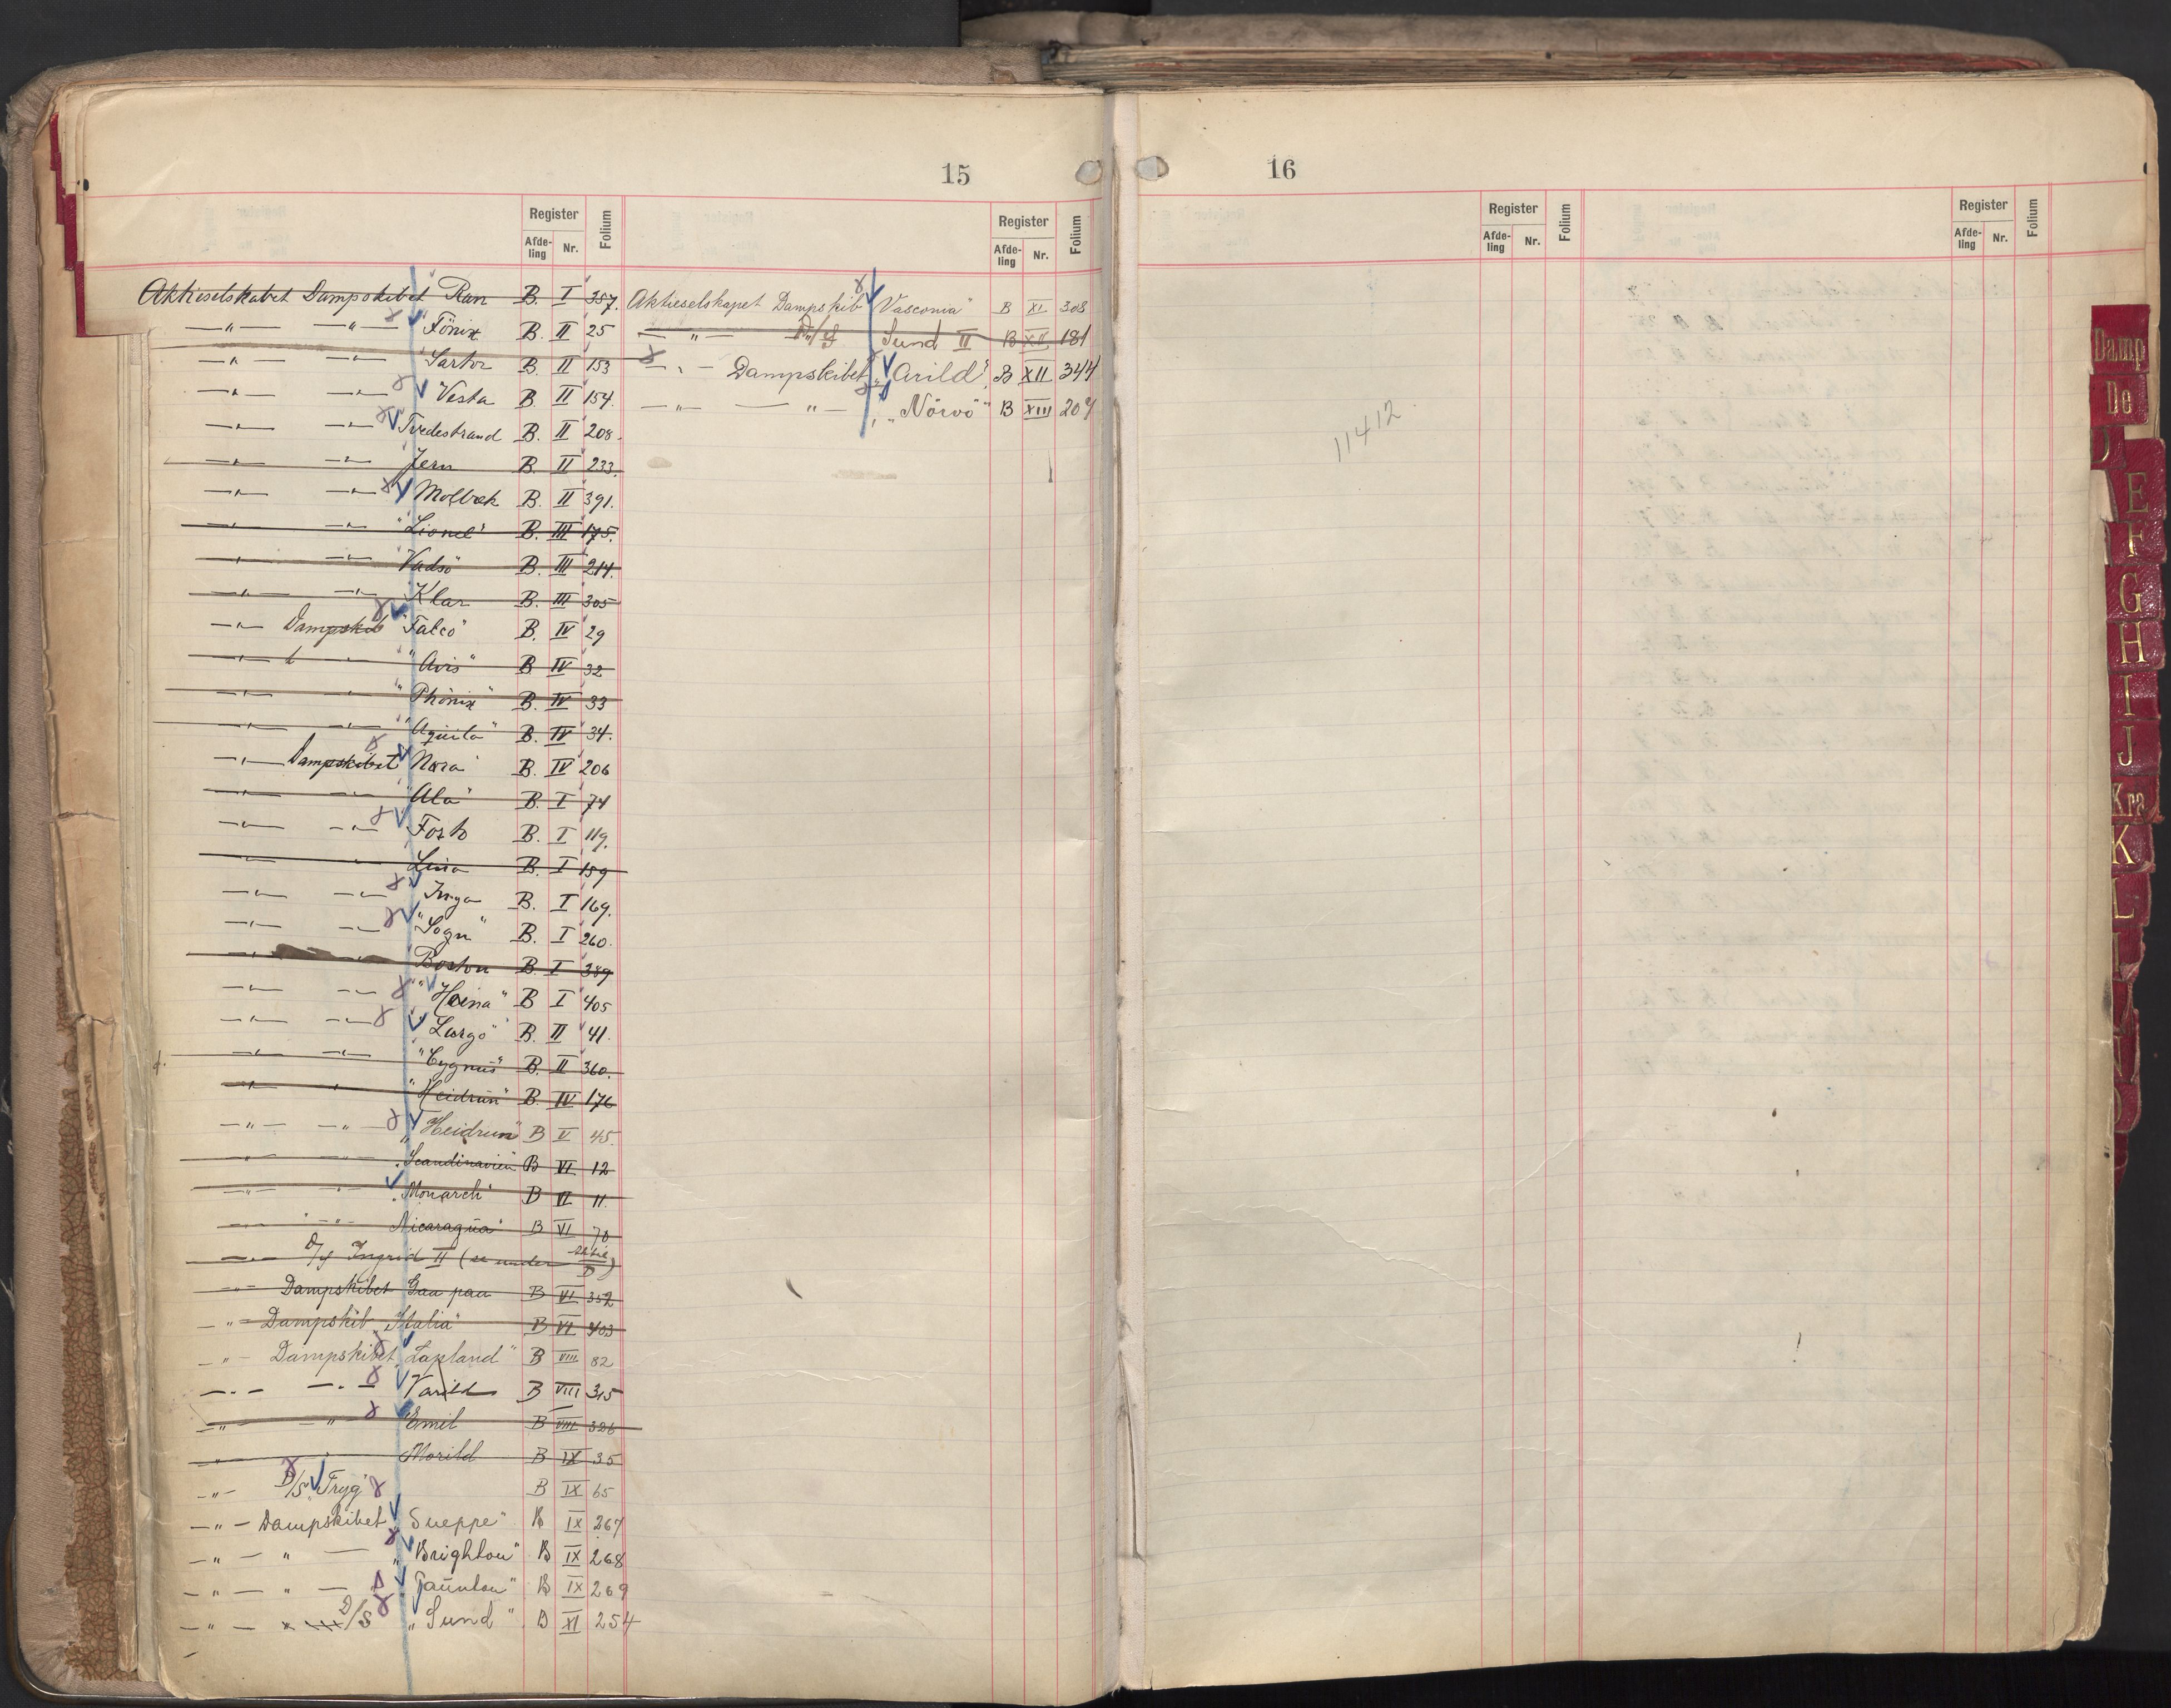 15
Register Folium Register Folium
Afde-ling Nr. Afde-ling Nr.
Aktieselskabet Dampskibet "Ran B. I 357.
—"— —"— "Fönix B. II 25
—"— —"— "Sartor B. II 153
—"— —"— "Vesta B. II 154.
—"— —"— Tvedestrand B. II 208.
—"— —"— Jern B. II 233.
—"— —"— Molbæk B. II 391.
—"— —"— "Lionel" B. III 175.
—"— —"— "Vadsö" B. III 214.
—"— —"— "Klar B. III 305
—"— Dampskib "Falco" B. IV 29
—"— " "Avis" B. IV 32
—"— —"— "Phönix" B. IV 33
—"— —"— "Aquila" B. IV 34.
—"— Dampskibet "Nora" B. IV 206
—"— —"— "Ala" B. I 74
—"— —"— B. I 119.
—"— —"— B. I 159
—"— —"— "Inga B. I 169.
—"— —"— "Sogn" B. I 260.
—"— —"— "Boston B. I 389
—"— —"— B I 405
—"— —"— "Largo" B. II 41.
—"— —"— "Cygnus" B. II 360.
—"— —"— "Heidrun" B. IV 176
—"— —"— "Heidrun" B V 45.
—"— —"— "Scandinavien" B VI 12
—"— —"— "Monarch" B VI 11.
—"— —"— Nicaragua" B VI 70
—"— D/S Ingrid II (se under Aktie D)
—"— Dampskibet B VI 352
—"— Dampskib "Italia" B VI 403
—"— Dampskibet "Lapland" B VIII 82
—"— —"— Varild B VIII 315
—"— —"— "Emil B VIII 326
—"— —"— Morild B IX 35
—"— D/S "Tryg" B IX 65
—"— Dampskibet "Sneppe" B IX 267
—"— —"— "Brighton" B IX 268
—"— —"— "Taunton" B IX 269
—"— D/S "Sund" B XI 254
Aktieselskapet Dampskib "Vasconia" B XI 308
—"— D/S Sund II B XII 181
—"— Dampskibet "Arild" B XII 344
—"— —"— "Nörvö" B XIII 207
16
Register Folium Register Folium
Afde-ling Nr. Afde-ling Nr.
11412
Damp
De
E
F
G
H
I
J
Kra
K
L